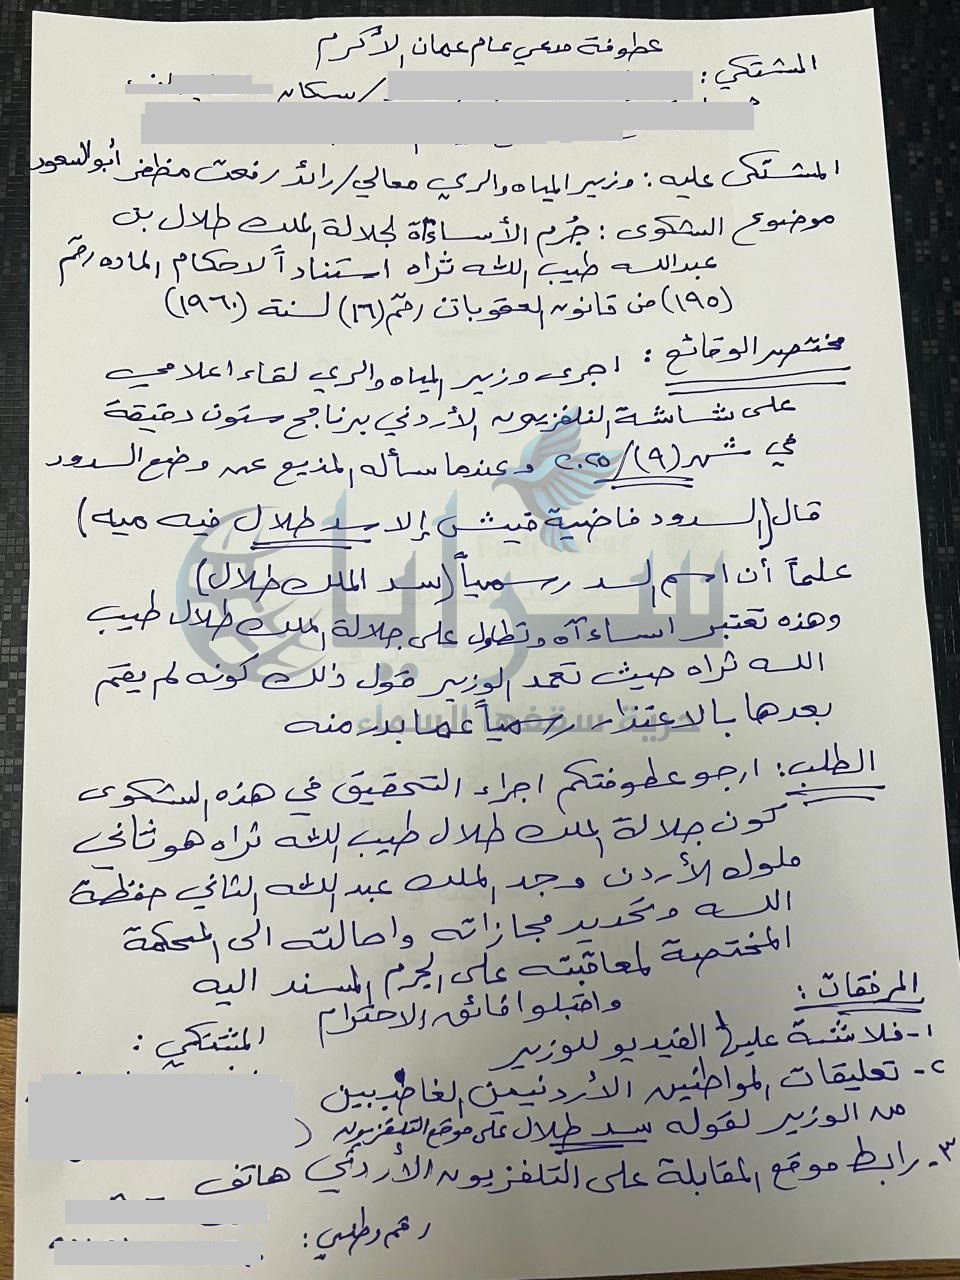 عطوفة مدعي عام عمان الأكرم
المشتكي :
/ سكان
المشتكى عليه : وزير المياه والري معالي / رائد رفعت مظفر أبو السعود
موضوع الشكوى : جُرم الأساءة لجلالة الملك طلال بن
عبدالله طيب الله ثراه استناداً لاحكام الماده رقم
(١٩٥) من قانون العقوبات رقم (١٦) لسنة (١٩٦٠)
مختصر الوقائع : اجرى وزير المياه والري لقاء اعلامي
على شاشة التلفزيون الأردني برنامج ستون دقيقة
في شهر (٩) / ٢٠٢٥ وعندما سأله المذيع عن وضع السدود
قال (السدود فاضية فيش إلا سد طلال فيه ميه)
علماً أن اسم السد رسمياً (سد الملك طلال)
وهذه تعتبر اساءآه وتطاول على جلالة الملك طلال طيب
الله ثراه حيث تعمد الوزير قول ذلك كونه لم يقم
بعدها بالاعتذار رسمياً عما بدر منه
سرايا
حرية سقفها السماء
الطلب : ارجو عطوفتكم اجراء التحقيق في هذه الشكوى
كون جلالة الملك طلال طيب الله ثراه هو ثاني
ملوك الأردن وجد الملك عبدالله الثاني حفظة
الله وتحديد مجازاته واحالته الى المحكمة
المختصة لمعاقبته على الجرم المسند اليه
واقبلوا فائق الاحترام
المرفقات :
المشتكي :
١- فلاشة عليها الفيديو للوزير
٢- تعليقات المواطنين الأردنيين الغاضبين
من الوزير لقوله سد طلال على موقع التلفزيون
٣- رابط موقع المقابلة على التلفزيون الأردني
هاتف
رقم وطني :